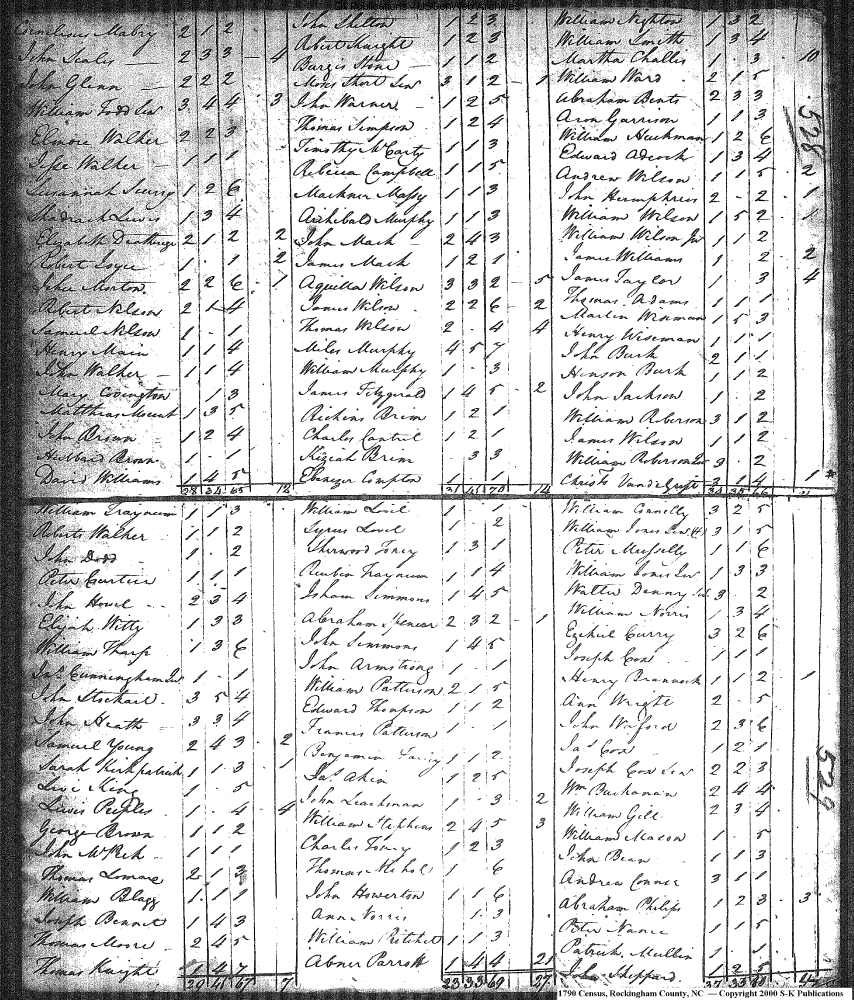 Cornelius Mabry 2 1 2
John Scales 2 3 3 4
John Glenn 2 2 2
William Todd Senr 3 4 4 3
Elmore Walker 2 2 3
Walker 1 1 1
Susannah Scurry 1 2 6
Shadrach Lewis 1 3 4
Elizabeth 2 1 2 2
Robert Joyce 1 . 1 2
John Morton 2 2 6 1
Albert Nelson 2 1 4
Samuel Nelson 1 . 1
Henry Main 1 1 4
John Walker 1 1 4
Mary Covington . 1 3
Matthias Mount 1 3 5
John Brown 1 2 4
Hubbard Brown 1 . 1
David Williams 1 4 5
28 34 63 12
John Shelton 1 2 3
Robert Knight 1 2 3
Burgis Stone 1 1 2
Moses Short Senr 3 1 2 1
John Warner 1 2 5
Thomas Simpson 1 2 4
Timothy McCarty 1 1 3
Rebecca Campbell 1 1 5
Markner Massy 1 1 3
Archibald Murphy 1 1 3
John Mach 2 4 3
James Mach 1 2 1
Aquilla Wilson 3 3 2 5
James Wilson 2 2 6 2
Thomas Wilson 2 . 4 4
Miles Murphy 4 5 7
William Murphy 1 . 3
James Fitzgerald 1 4 5 2
Rickins Brim 1 2 1
Charles Cantril 1 2 1
Kiziah Brim . 3 3
Ebenezer Compton 1 1 1
31 41 70 14
William Nighton 1 3 2
William Smith 1 3 4
Martha Challis 1 . 3 10
William Ward 2 1 5
Abraham Bents 2 3 3
Aron Garrison 1 1 3
William Heickman 1 2 6
Edward Adcock 1 3 4
Andrew Wilson 1 1 5 2
John Humphries 2 - 2 1
William Wilson 1 5 2 1
William Wilson Jur 1 1 2
James Williams 1 . 2 2
James Taylor 1 3 4
Thomas Adams 1 1 1
Martin Wiseman 1 5 3
Henry Wiseman 1 1 1
John Burk 2 1 1
Henson Burk 1 1 2
John Jackson 1 . 2
William Roberson 3 1 2
James Wilson 1 1 2
William Roberson Jur 3 2
Christo Vandelgrift 3 1 4 1
528
William Traynum 1 1 3
Roberts Walker 1 1 2
John Dodd 1 . 2
Peter Curtice 1 1 1
John Hovel 2 3 4
Elijah Witty 1 3 3
William Tharp 1 3 6
Jas Cunningham Jur 1 . 1
John Stockard 3 5 4
John Heath 3 3 4
Samuel Young 2 4 3 2
Sarah Kirkpatrick 1 1 3 1
Levi King 1 . 5
Lewis Peoples 1 . 4 4
George Brown 1 1 2
John McPeek 1 1 1
Thomas Lomare 2 1 3
William Blagg 1 1 1
Joseph Bennet 1 4 3
Thomas Moore 2 4 5
Thomas Knight 1 4 7
29 41 67 7
William Lovil 1 . 1
Syrus Lovil 1 2
Sherwood Toney 1 3 1
Reubin Traynum 1 1 4
Isham Simmons 1 4 5
Abraham Spencer 2 3 2 1
John Simmons 1 4 5
John Armstrong 1 . 1
William Patterson 2 1 5
Edward Thompson 1 1 2
Francis Patterson 1 . 1
Benjamin 1 1 2
Jas Akin 1 2 5
John Leachman 1 . 3 2
William Stephens 2 4 5 3
Charles Toney 1 2 3
Thomas Nichol 1 6
John Howerton 1 1 6
Ann Norris 1 3
William Pritchet 1 1 3
Abner Parrott 1 4 4 21
23 33 69 27
William Connelly 3 2 5
William Jones Senr 3 1 5
Peter Mulfelly 1 1 6
William Jones Jur 1 3 3
Walter Denny 3 . 2
William Norris 1 3 4
Ezekiel Curry 3 2 6
Joseph Cox 1 1 1
Henry Brannock 1 1 2 1
Ann Wright 2 . 5
John Wafford 2 3 6
Jas Cox 1 2 1
Joseph Cox Senr 2 2 3
Wm Buchanan 2 4 4
William Gill 2 3 4
William Mason 1 . 5
John Bean 1 1 3
Andrew Conner 3 1 1
Abraham Philips 1 2 3 3
Peter Nance 1 1 5
Patrick Mullin 1 . 1
John Sheppard 1 2 5
529
1790 Census, Rockingham County, NC — Copyright 2000 S-K Publications